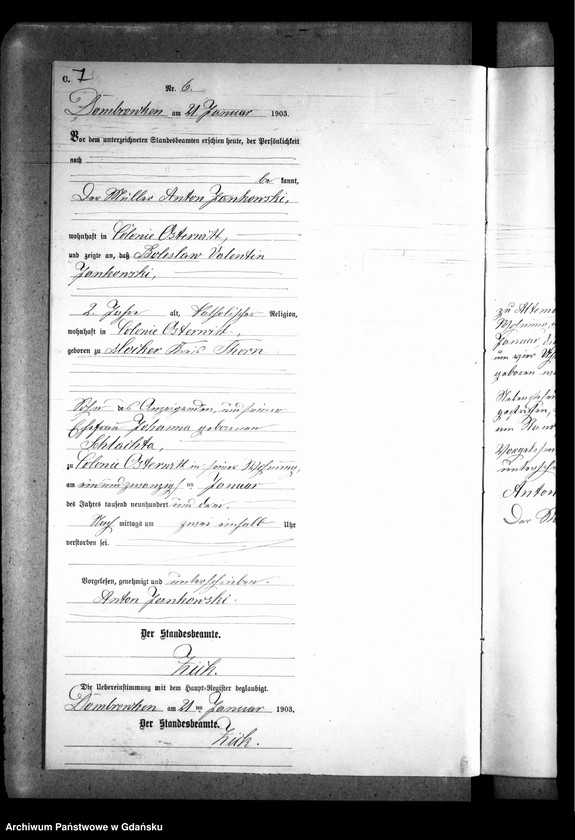 C. 7
Nr. 6.
Dombrowken am 21 Januar 1903.
Vor dem unterzeichneten Standesbeamten erschien heute, der Persönlichkeit
nach
be kannt,
Der Müller Anton Jankowski,
wohnhaft in Colonie Osterwitt,
und zeigte an, daß Boleslaw Valentin
Jankowski,
2 Jahre alt, katholischer Religion,
wohnhaft in Colonie Osterwitt,
geboren zu Mocker Kreis Thorn
Sohn des Anzeigenden, und seiner
Ehefrau Johanna geborenen
Schlachta,
zu Colonie Osterwitt in seiner Wohnung,
am einundzwanzigsten Januar
des Jahres tausend neunhundert und drei
Nach mittags um zwei einhalb Uhr
verstorben sei.
Vorgelesen, genehmigt und unterschrieben.
Anton Jankowski.
Der Standesbeamte.
Zuch.
Die Uebereinstimmung mit dem Haupt-Register beglaubigt.
Dombrowken am 21 ten Januar 1903.
Der Standesbeamte.
Zuch.
zu Altem
Wohnung,
Januar,
um vier
geboren
um
Vorgelesen
unterschr
Anton
Der St
Archiwum Państwowe w Gdańsku